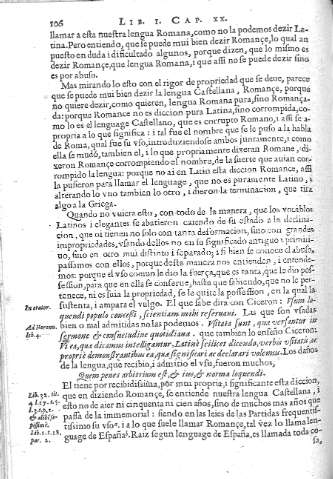 106 LIB. I. CAP. XX.
llamar a esta nuestra lengua Romana, como no la podemos dezir La-
tina. Pero entiendo, que se puede mui bien dezir Romançe, lo qual an
puesto en duda i dificultado algunos, porque dizen, que lo mismo es
dezir Romançe, que lengua Romana, i que assi no se puede dezir sino
es por abuso.
Mas mirando lo esto con el rigor de propriedad que se deve, parece
que se puede mui bien dezir la lengua Castellana, Romançe, porque
no quiere dezir, como quieren, lengua Romana pura, sino Romança-
da: porque Romance no es diccion pura Latina, sino corrompida, co-
mo lo es el lenguage Castellano, que es corrupto Romano, i assi se a-
propria a lo que significa: i tal fue el nombre que se le puso a la habla
de Roma, qual fue su uso, introduziendose ambos juntamente, i como
ella se mudò, tambien el, a lo que propriamente dixeran Romano, di-
xeron Romance corrompiendo el nombre, de la suerte que avian cor-
rompido la lengua: porque no ai en Latin esta diccion Romance, assi
la pusieron para llamar el lenguage, que no es puramente Latino, i
alterando lo uno tambien lo otro, i dieron la terminacion, que tira
algo a la Griega.
Quando no uviera esto, con todo de la manera, que los vocablos
Latinos i elegantes se abatieron cayendo de su estado a la declina-
cion, que oi tienen no solo con tanta deformacion, sino con grandes
impropriedades, usando dellos no en su significado antiguo i primi-
vo, sino en otro mui distinto i separado; i si bien se conoce el abuso,
passamos con ellos, porque desta manera nos entienden, i entende-
mos: porque el uso comun le dio la fuerça, que es tanta, que le dio pos-
session, para que en ella se conserve, hasta que sabiendo, que no le per-
tenece, ni es suia la propriedad, se le quite la possession, en la qual la
sustenta, i ampara el vulgo. El que sabe dira con Ciceron: Usum lo-
In orator. quendi populo concessi, scientiam mihi reservavi. Las que son usados
Ad Herenn. lib. 4. bien o mal admitidas no las podemos. Usitata sunt, que versantur in
sermone & consuetudine quotidiana. que tambien lo enseña Ciceron:
Vt ea, que dicamus intelligantur. Latinè scilicet dicendo, verbis usitatis ac
propriè demonstrantibus ea, que significari ac declarari volemus. Los daños
de la lengua, que recibio, i admitio el uso, fueron muchos,
Quem penes arbitrium est, & ius, & norma loquendi.
El tiene por recibidissima, por mui propria, i significante esta diccion,
que en diziendo Romançe, se entiende nuestra lengua Castellana, i
esto no de aier ni cinquenta ni cien años, sino de muchos mas años que
passa de la immemorial: siendo en las leies de las Partidas frequentis-
tissimo su uso. i a lo que suele llamar Romançe, tal vez lo llama len-
guage de España. Raiz segun lenguage de España, es llamada toda co-
sa,